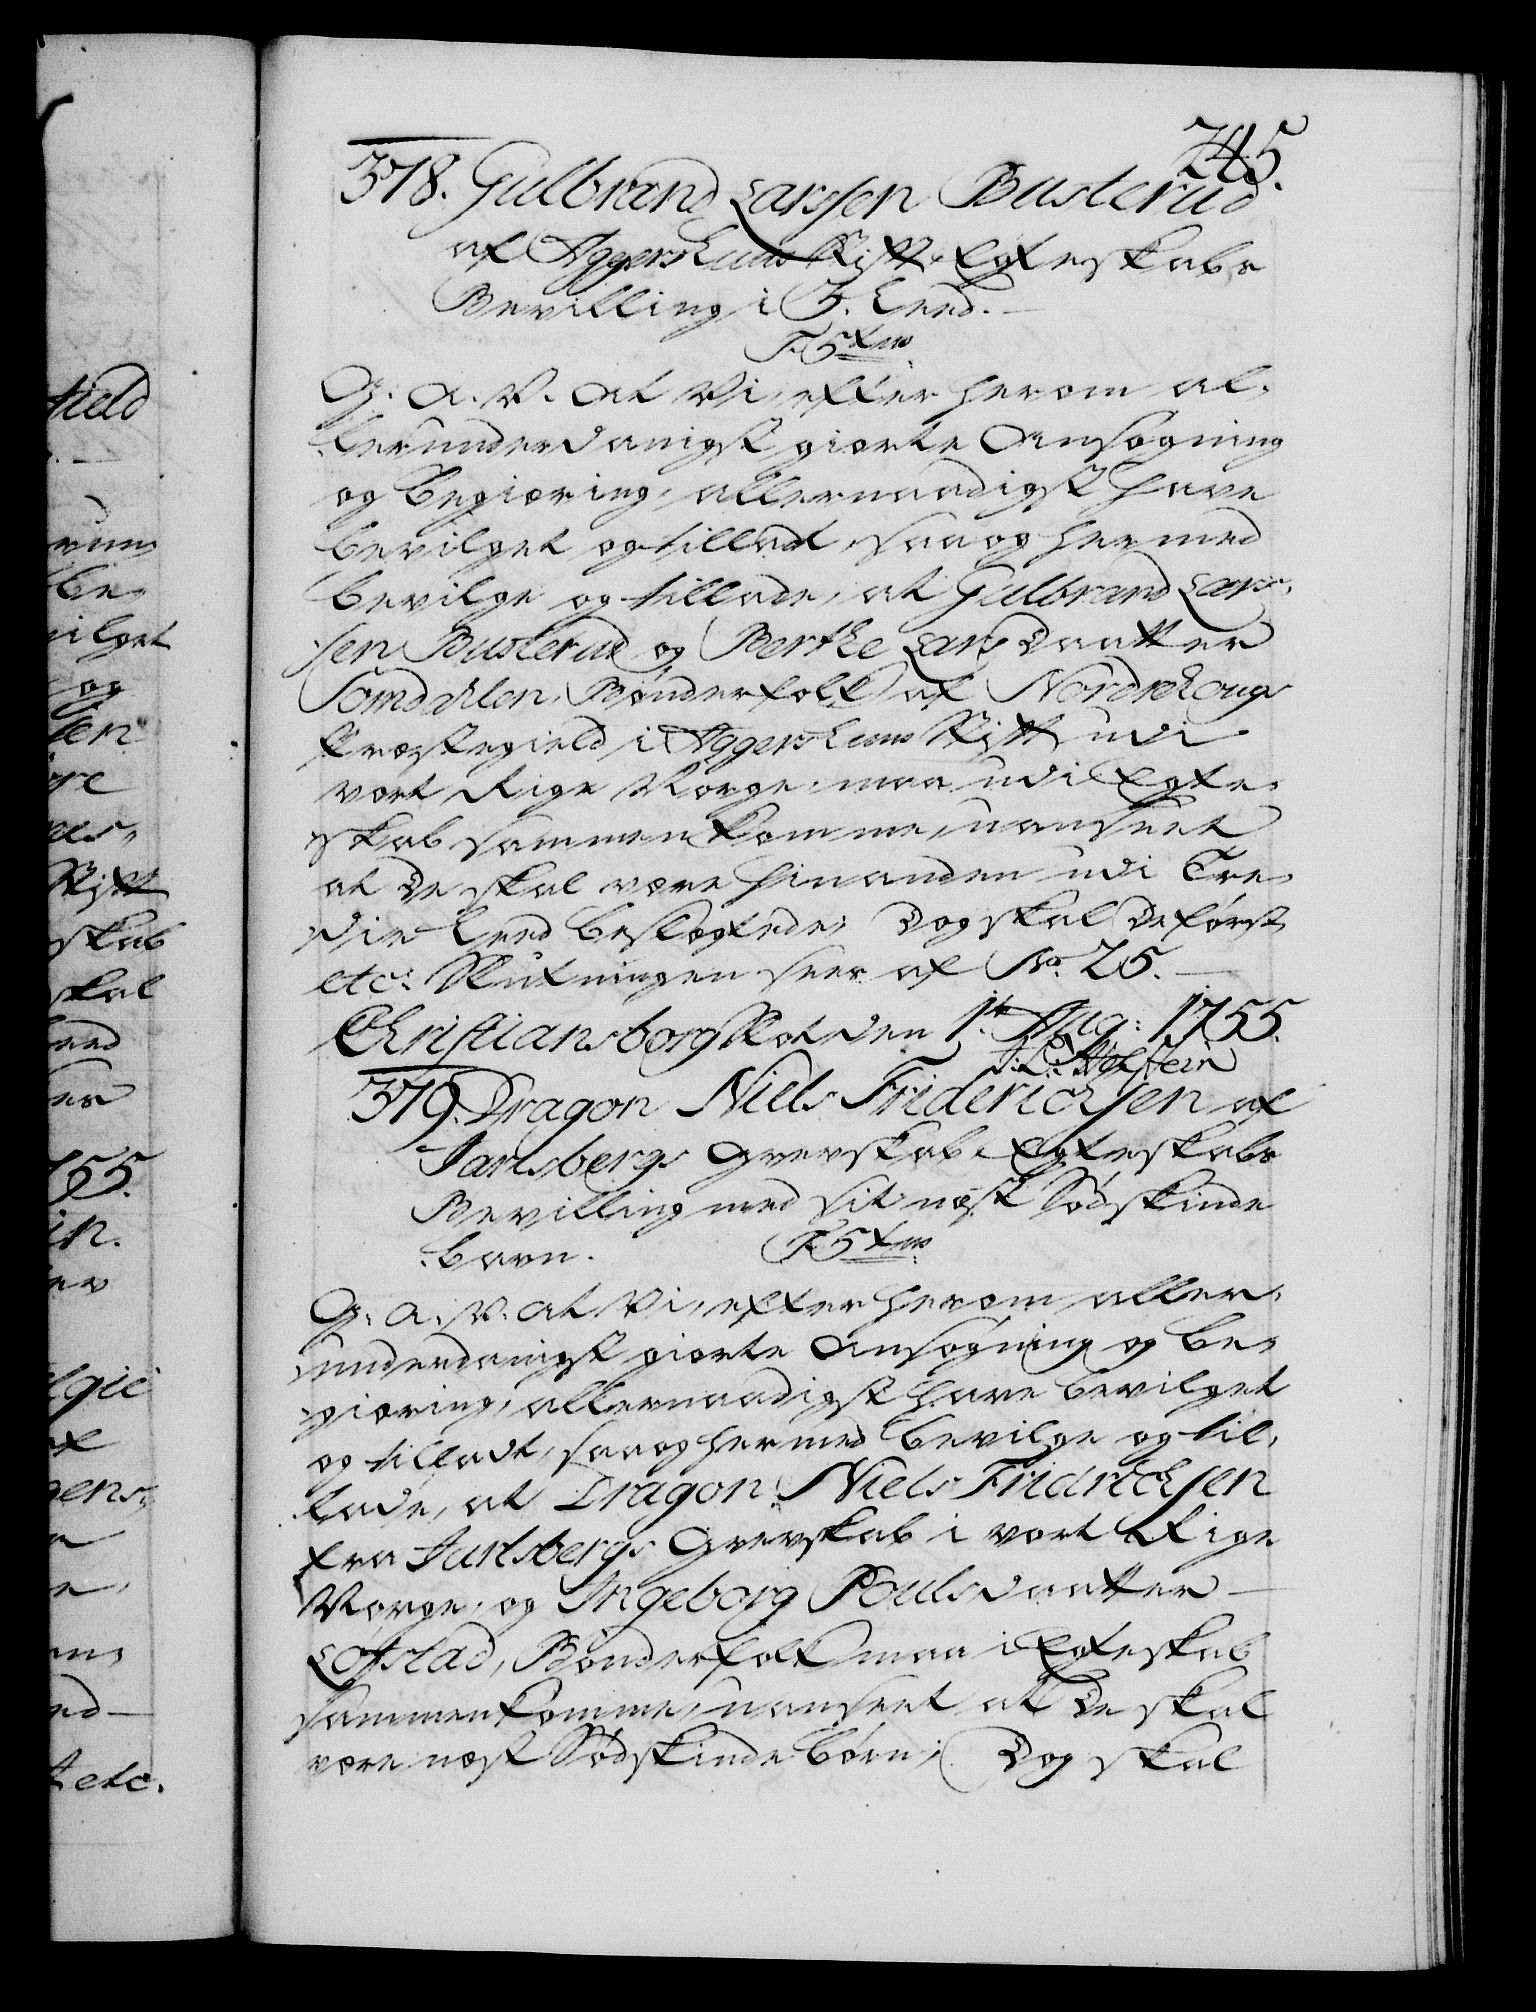 245.
378. Gulbrand Larssen Busterud
af Aggershuus Stift Egteskabs
Bevilling i 3. Leed.
F 5te
G. A. V. at Vi, efter herom al-
lerunderdanigst giorte Ansøgning
og begiæring, allernaadigst have
bevilget og tilladt, saa og hermed
bevilge og tillade, at Gulbrand Lars-
sen Busterud og Berthe Lars Daatter
Somdahlen, Bønderfolk af Nordrehougs
Præstegield i Aggershuus Stift udi
vort Rige Norge, maa udi Egte-
skab sammenkomme, uanseet
at De skal være hinanden udi Tre-
die Leed beslægtede; Dog skal De først
etc: Slutningen sees af No. 25.
Christiansborg Slot den 1te Aug: 1755.
J. L. Holstein
379. Dragon Niels Friderichsen af
Jarlsbergs Grevskab Egteskabs
Bevilling med sit næst Sødskinde
barn.
F. 5te
G. A. V. at Vi, efter herom aller-
underdanigst giorte Ansøgning og be-
giæring, allernaadigst have bevilget
og tilladt, saa og hermed bevilge og til-
lade, at Dragon Niels Fridrichsen
fra Jarlsbergs Grevskab i vort Rige
Norge, og Ingeborg Poulsdaatter
Lofstad, Bønderfolk maa i Egteskab
sammenkomme, uanseet at De skal
være næst Sødskindebørn; Dog skal